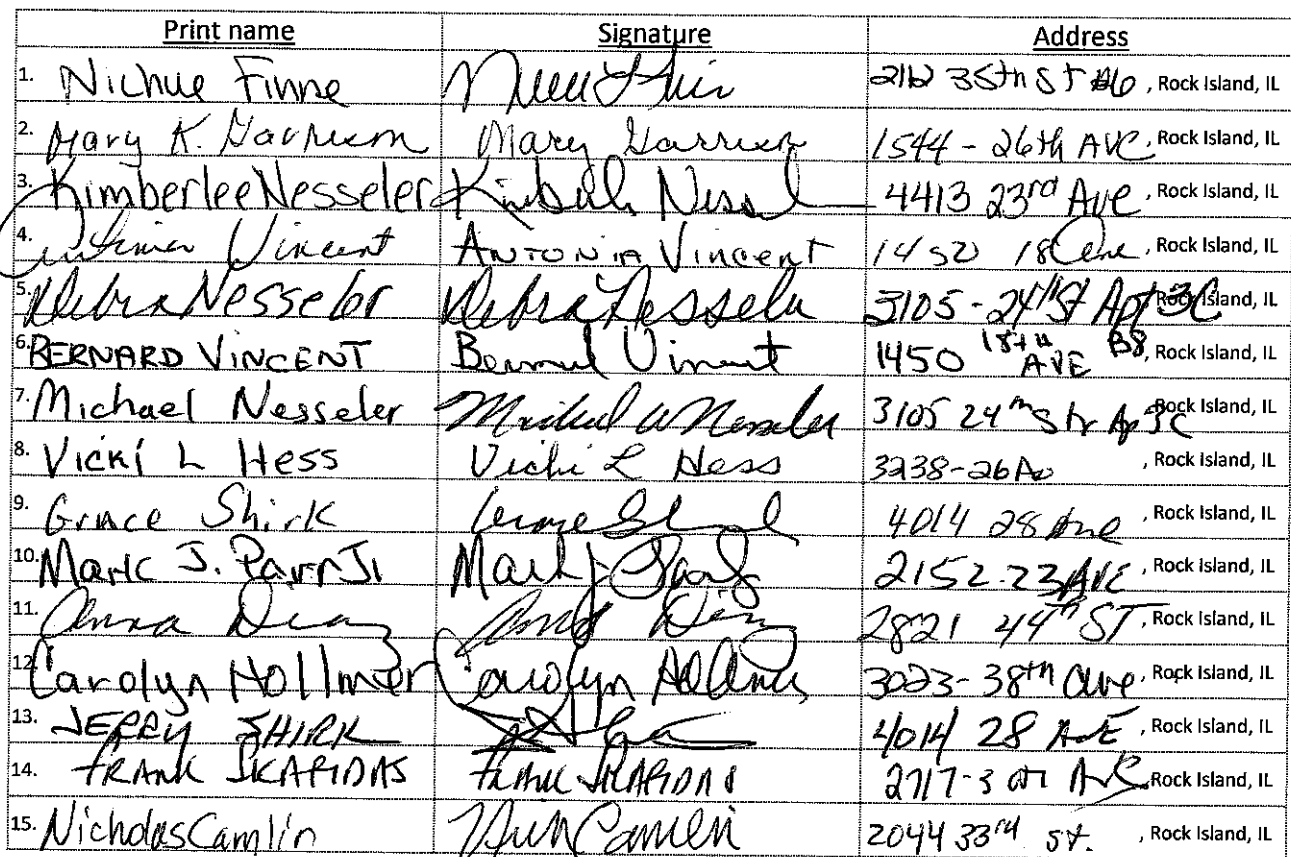 Print name Signature Address
1. Nichue Finne 2112 35th St #6, Rock Island, IL
2. Mary K. Garrison Mary Garrison 1544 - 26th AVE, Rock Island, IL
3. Kimberlee Nesseler 4413 23rd Ave, Rock Island, IL
4. Antonia Vincent ANTONIA Vincent 1450 18 Ave, Rock Island, IL
5. Debra Nesseler Debra Nesseler 3105 - 24th St Apt 3C, Rock Island, IL
6. BERNARD VINCENT Bernard Vincent 1450 18th AVE B8, Rock Island, IL
7. Michael Nesseler Michael W Nesseler 3105 24th Str Ap 3C, Rock Island, IL
8. Vicki L Hess Vicki L Hess 3238-26 Av, Rock Island, IL
9. Grace Shirk 4014 28 Ave, Rock Island, IL
10. Mark J. Parr Jr 2152-23 AVE, Rock Island, IL
11. Anna Diaz 2821 44th ST, Rock Island, IL
12. Carolyn Hollmer Carolyn Hollmer 3023-38th Ave, Rock Island, IL
13. JERRY SHIRK 4014 28 AVE, Rock Island, IL
14. FRANK SKAFIDAS FRANK SKAFIDAS 2717-30th AVE, Rock Island, IL
15. Nicholas Camlin Nick Camlin 2044 33rd St., Rock Island, IL